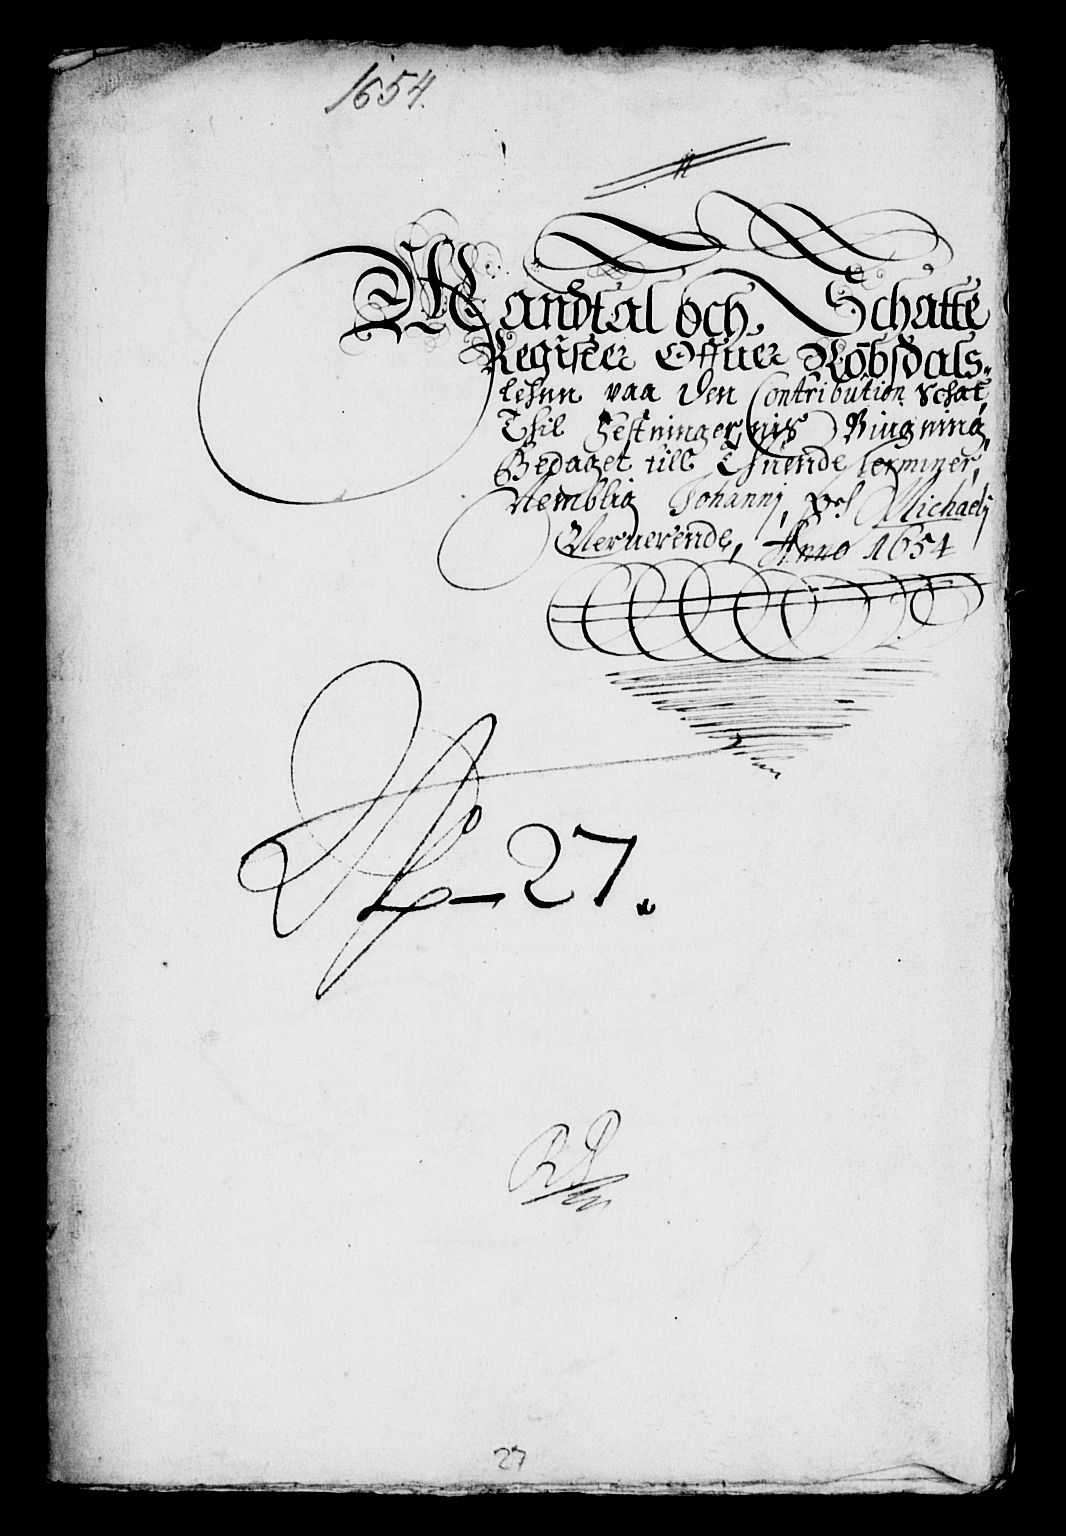 1654.
Mandtal och Schatte
Register Offuer Robsdals-
lehnn paa den Contribution Schat,
Thil Festningernis Biugning,
Bedaget till Thuende Terminer,
Nemblig Johannj, och Michaelj
Neruerende, Anno 1654
No - 27.
27